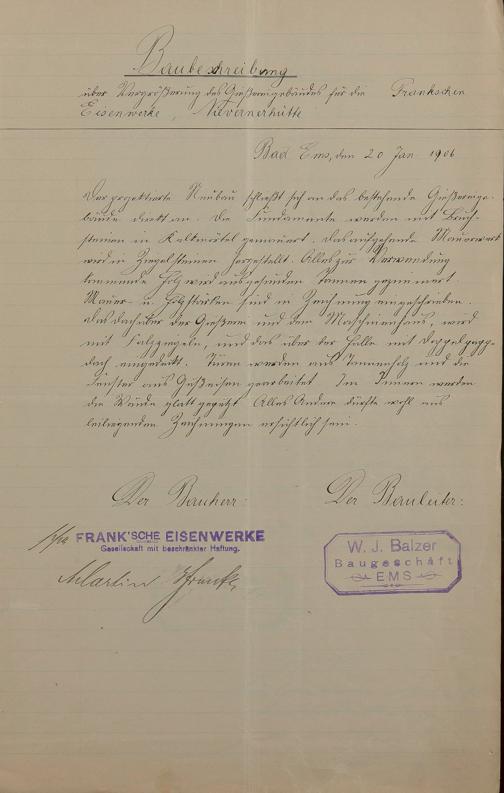 Baubeschreibung
über Vergrößerung des Gießereigebäudes für die Frankschen
Eisenwerke, Nievernerhütte
Bad Ems, den 20 Jan 1906
Der projektierte Neubau schließt sich an das bestehende Gießereige-
bäude direkt an. Die Fundamente werden mit Bruch-
steinen in Kalkmörtel gemauert. Das aufgehende Mauerwerk
wird in Ziegelsteinen hergestellt. Alles zur Verwendung
kommende Holz wird aus gesunden Tannen gezimmert
Mauer- u. Holzstärken sind in Zeichnung eingeschrieben.
Das Dach über der Gießerei und dem Maschinenhaus, wird
mit Falzziegeln, und das über der Halle mit Doppelpapp-
dach eingedeckt. Türen werden aus Tannenholz und die
Fenster aus Gußeisen gearbeitet Im Innern werden
die Wände glatt geputzt Alles Andere dürfte wohl aus
beiliegenden Zeichnungen ersichtlich sein.
Der Bauherr: Der Bauleiter:
FRANK'SCHE EISENWERKE
Gesellschaft mit beschränkter Haftung.
Martin Francke
W. J. Balzer
Baugeschäft
EMS